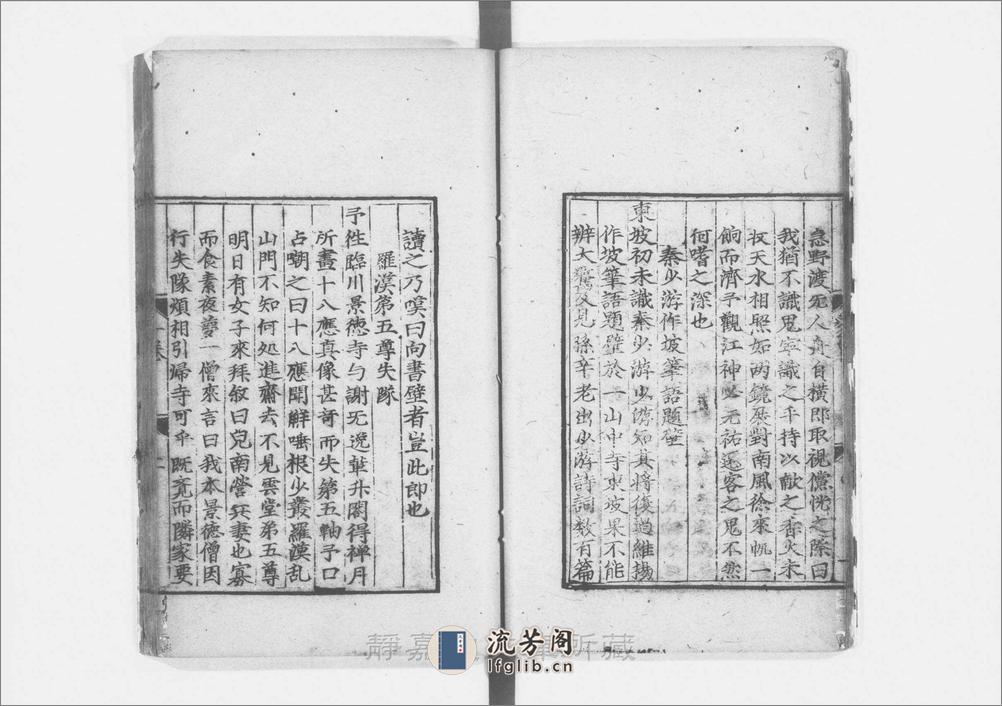 急野渡無人舟自橫即取視儻恍之際曰
我猶不識鬼寧識之乎持以獻之香火未
収天水相照如兩鏡展對南風徐來帆一
餉而濟予觀江神必元祐迁客之鬼不然
何嗜之深也
秦少游作坡筆語題壁
東坡初未識秦少游少游知其將復過維揚
作坡筆語題壁於一山中寺東坡果不能
辨大驚及見孫莘老出少游詩詞數百篇
讀之乃嘆曰向書壁者豈此郎也
羅漢第五尊失隊
予徃臨川景德寺与謝无逸軰升閣得禅月
所畫十八應真像甚奇而失第五軸予口
占嘲之曰十八應聞解唾根少叢羅漢乱
山門不知何処進齋去不見雲堂第五尊
明日有女子來拜叙曰兒南營兵妻也寡
而食素夜夢一僧來言曰我本景德僧因
行失隊煩相引歸寺可乎既覚而隣家要
卷一
二
靜嘉堂文庫所藏
流芳阁
lfglib.cn